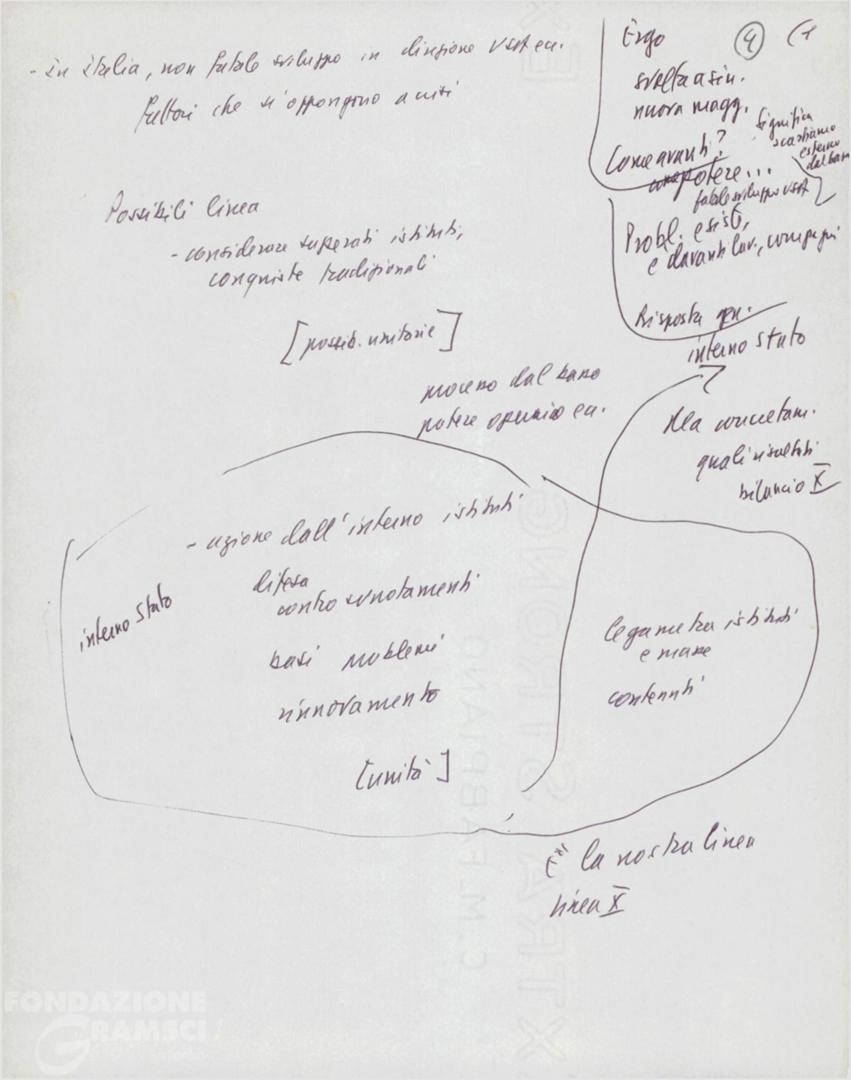 - in italia, non fatale sviluppo in direzione
fattori che si oppongono a crisi
Possibili linea
- considerare superati istituti,
conquiste tradizionali
[possib. unitarie]
processo dal basso
potere operaio ecc.
- azione dall'interno istituti
difesa
contro svuotamenti
basi problemi
rinnovamento
[unità]
interno Stato
Ergo
4
svolta a sin.
nuova magg.
Come avanti?
potere...
significa
scartiamo
esterno
dal basso
fatale sviluppo
Probl. esist,
e davanti lav., compagni
Risposta gen.
interno Stato
Ma concretam.
quali risultati
bilancio X
legame tra istituti
e masse
contenuti
la nostra linea
linea X
C.M.FABRIANO
EXTRA STRONG
FONDAZIONE
GRAMSCI